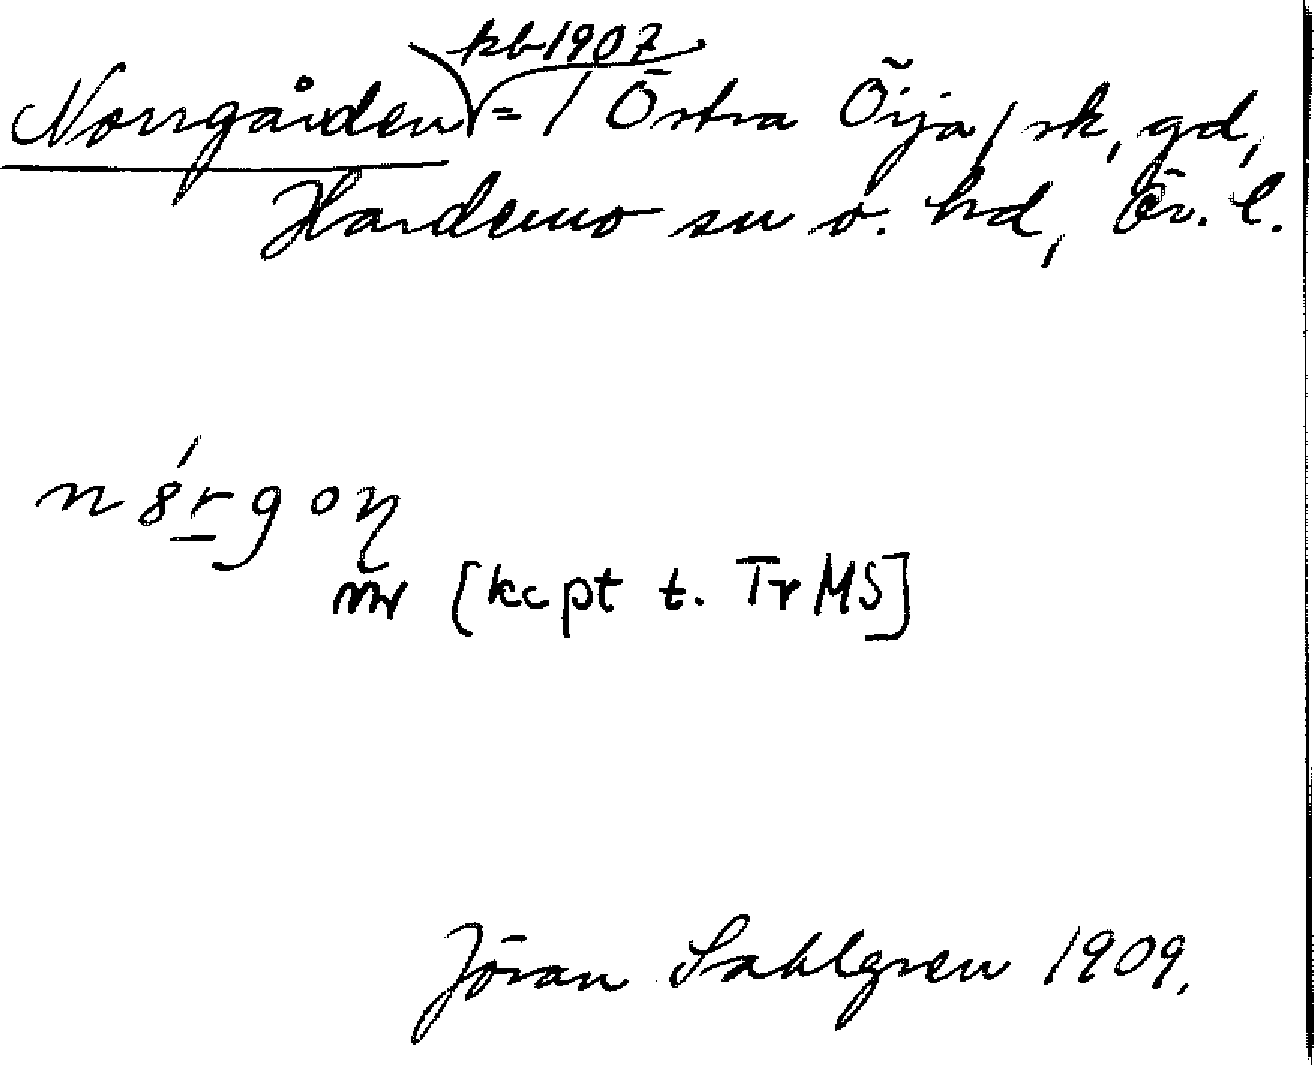 kb 1907
Norrgården = / Östra Öija / sk, gd,
Hardemo sn o. hd, Ör. l.
[kcpt t. TrMS]
Jöran Sahlgren 1909.